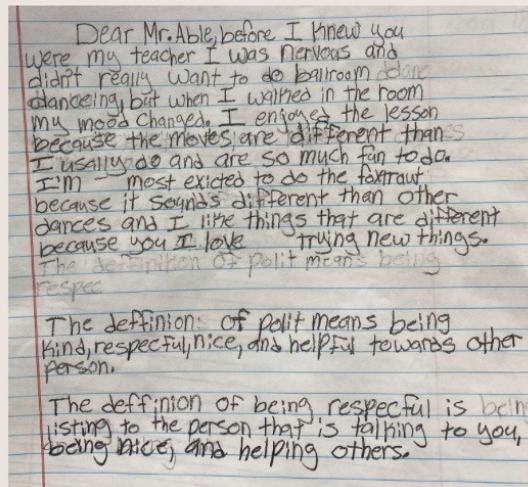 Dear Mr. Able, before I knew you
were my teacher I was nervous and
didn't really want to do ballroom
danceing, but when I walked in the room
my mood changed. I enjoyed the lesson
because the moves are different than
I usally do and are so much fun to do.
I'm most exicted to do the foxtraut
because it sounds different than other
dances and I like things that are different
because you I love trying new things.
The deffinition of polit means being
respec
The deffinion of polit means being
kind, respecful, nice, and helpful towards other
person.
The deffinion of being respecful is bein
listing to the person that is talking to you,
being nice, and helping others.